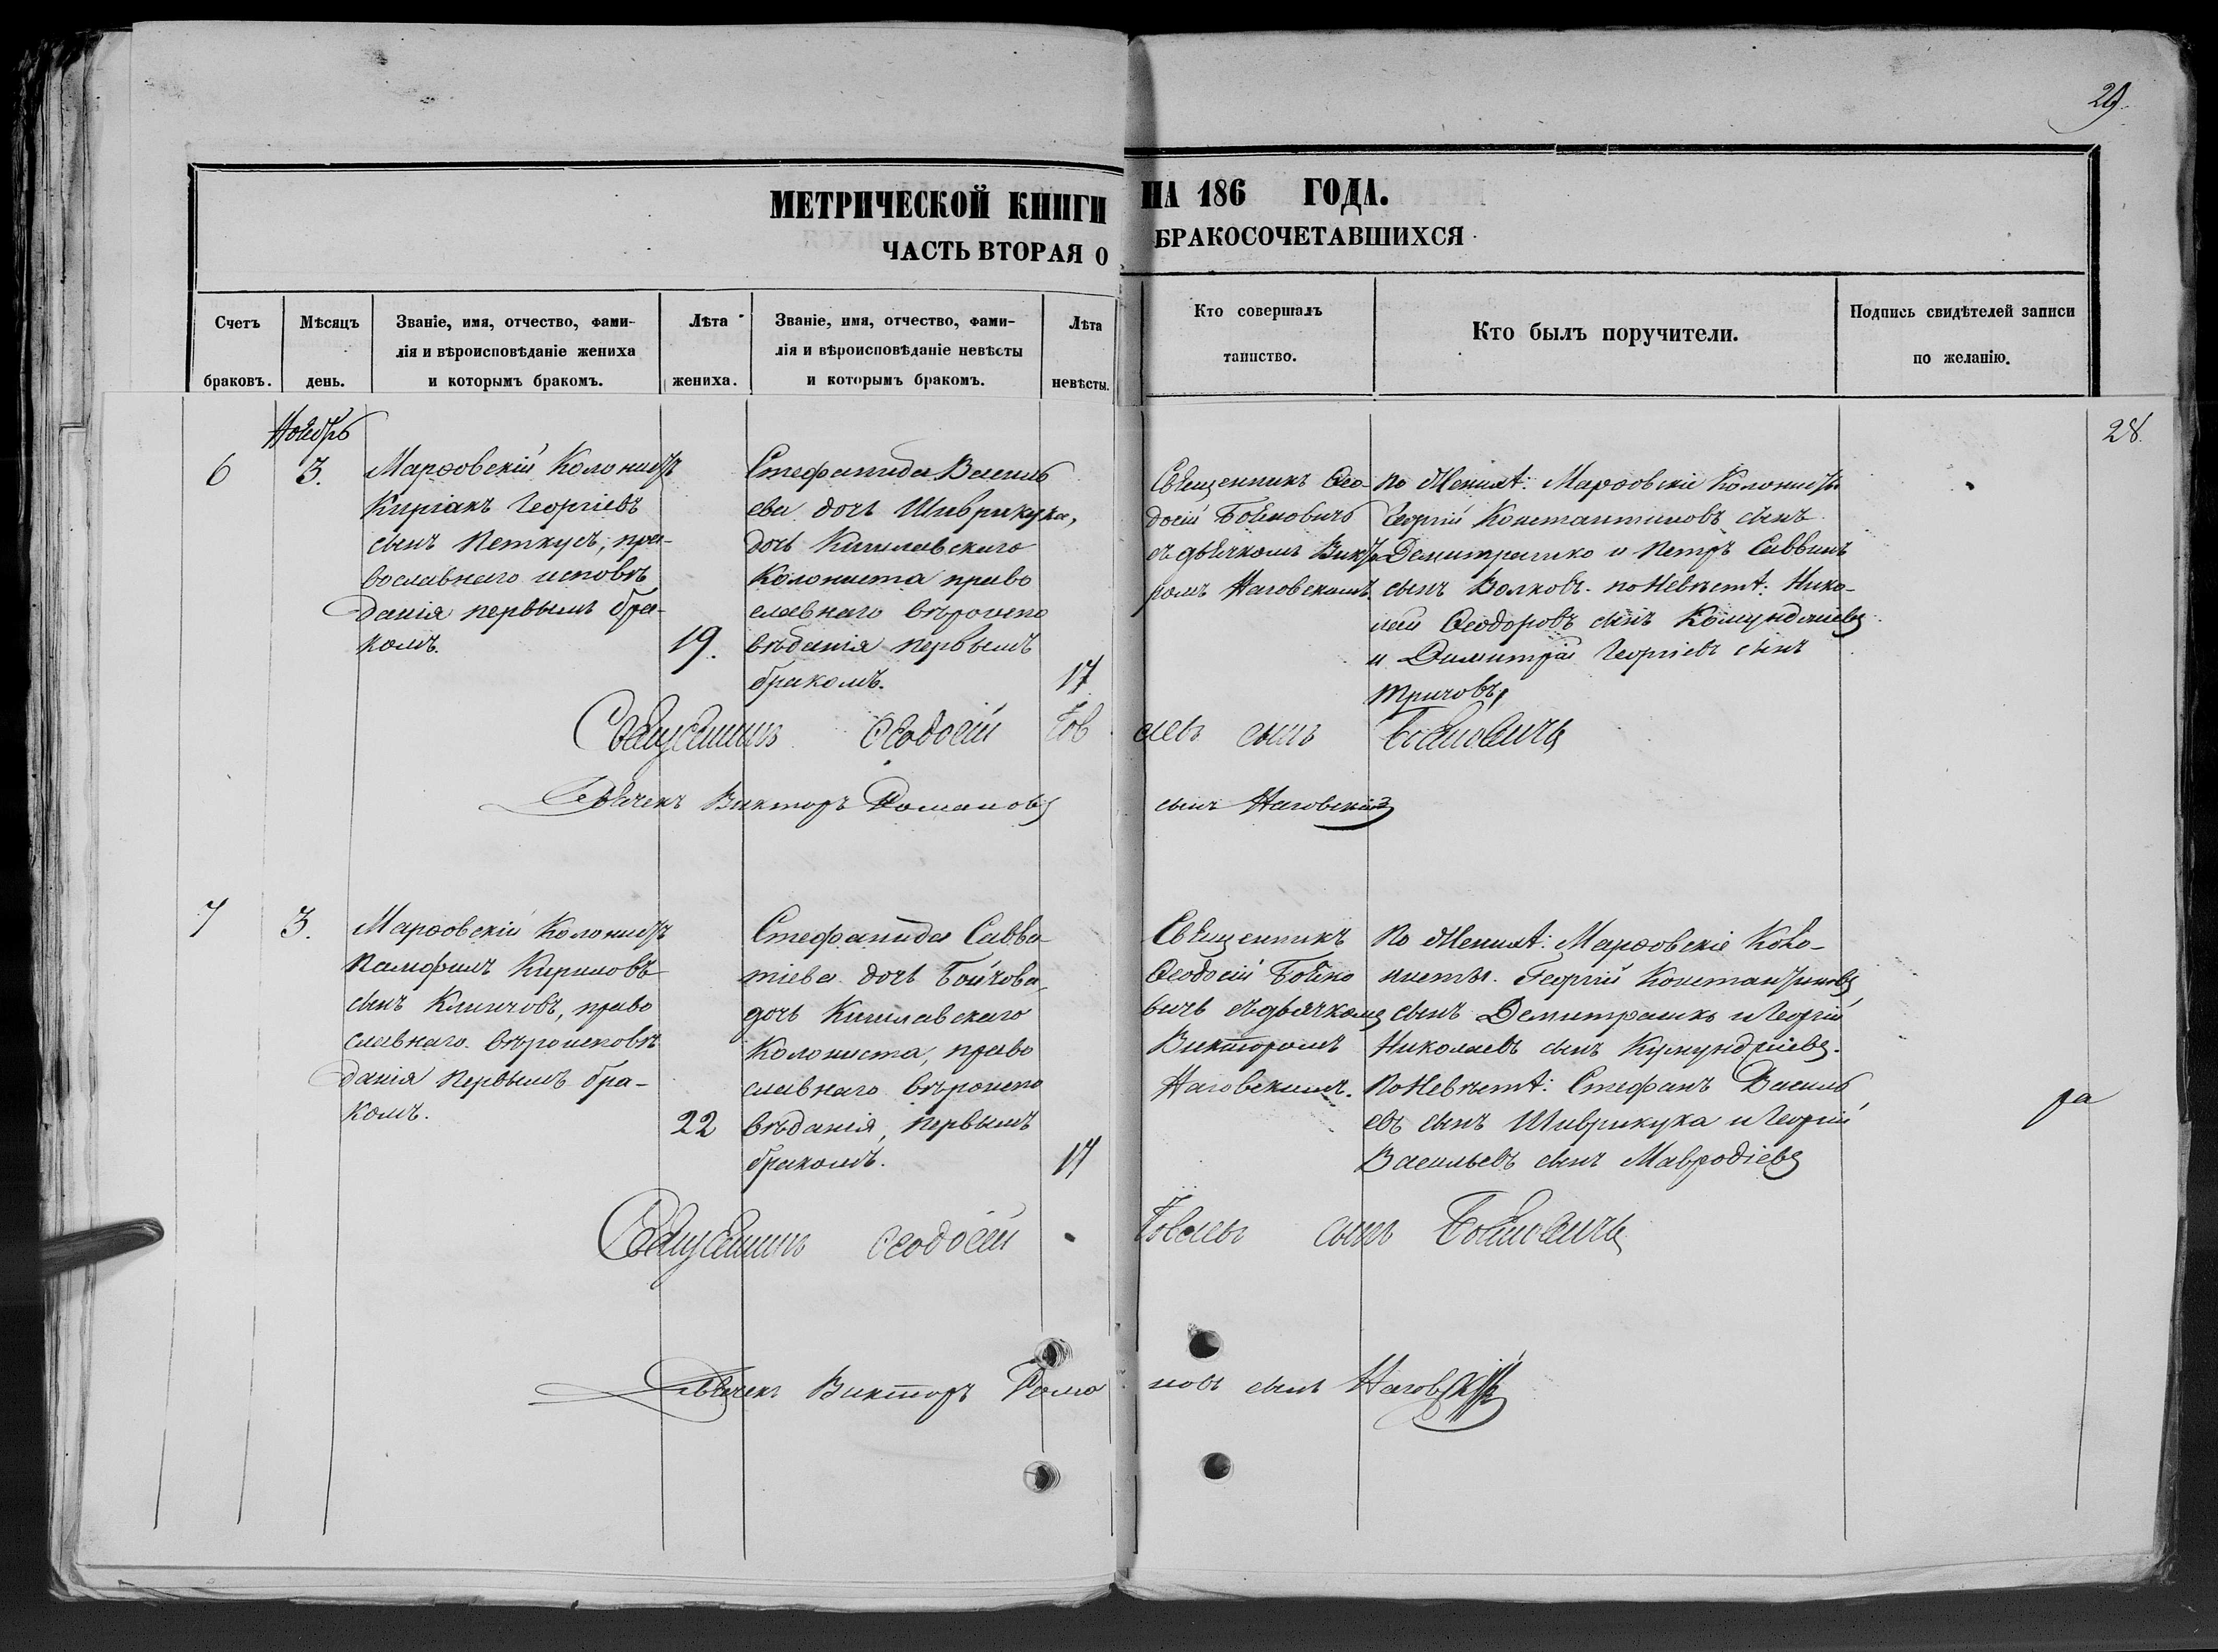 29.
МЕТРИЧЕСКОЙ КНИГИ НА 186 ГОДА.
ЧАСТЬ ВТОРАЯ О БРАКОСОЧЕТАВШИХСЯ
Счетъ
браковъ.
Мѣсяцъ
день.
Званіе, имя, отчество, фами-
лія и вѣроисповѣданіе жениха
и которымъ бракомъ.
Лѣта
жениха.
Званіе, имя, отчество, фами-
лія и вѣроисповѣданіе невѣсты
и которымъ бракомъ.
Лѣта
невѣсты.
Кто совершалъ
таинство.
Кто былъ поручители.
Подпись свидѣтелей записи
по желанію.
28.
Ноябрь
6
3.
Марѳовскій Колонистъ
Киріакъ Георгіевъ
сынъ Петкусъ, пра-
вославнаго исповѣ
данія первымъ бра-
комъ.
19.
Стефанида Василь
ева дочь Шиврикука,
дочь Кишлавскаго
Колониста право
славнаго вѣроиспо
вѣданія первымъ
бракомъ.
17
Священникъ Ѳео-
досій Бойновичъ
съ дьячкомъ Викто
ромъ Наговскимъ.
по Женихѣ: Марѳовскіе Колонисты
Георгій Константиновъ сынъ
Демитрашко и Петръ Саввинъ
сынъ Волковъ. по Невѣстѣ: Нико-
лай Ѳеодоровъ сынъ
и Димитрій Георгіевъ сынъ
Тричовъ,
Священникъ Ѳеодосій сынъ Бойновичъ
Дьячекъ Викторъ Романовъ сынъ Наговскій
7
3.
Марѳовскій Колонистъ
Памфилъ Кириловъ
сынъ Клинчовъ, право
славнаго вѣроисповѣ
данія первымъ бра-
комъ.
22
Стефанида Савва
тіева дочь Бойчова,
дочь Кишлавскаго
Колониста, право
славнаго вѣроиспо
вѣданія, первымъ
бракомъ.
17
Священникъ
Ѳеодосій Бойно
вичъ съ дьячкомъ
Викторомъ
Наговскимъ.
По Женихѣ: Марѳовскіе Коло-
нисты. Георгій Константиновъ
сынъ Демитрашко и Георгій
Николаевъ сынъ Кумунджіевъ.
По Невѣстѣ: Стефанъ Василь
евъ сынъ Шиврикука и Георгій
Васильевъ сынъ Мавродіевъ
ра
Священникъ Ѳеодосій сынъ Бойновичъ
Дьячекъ Викторъ Романовъ сынъ Наговскій